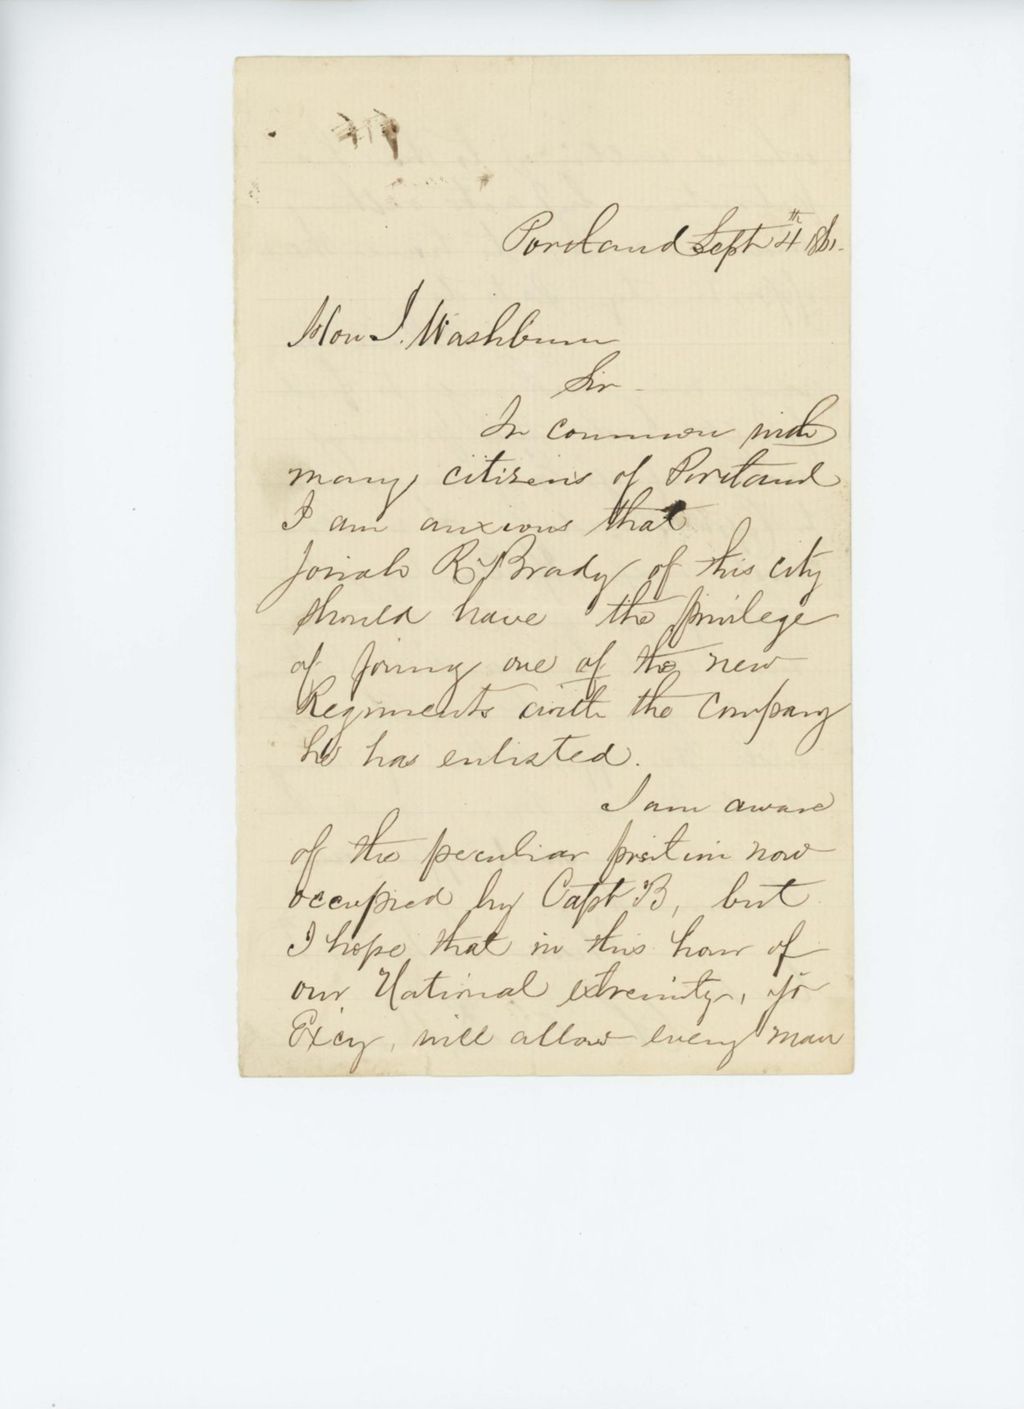 Portland Sept 4th 1861.
Hon I. Washburn
Sir -
In common with
many citizens of Portland
I am anxious that
Josiah R. Brady of this city
should have the privilege
of joining one of the new
Regiments with the company
he has enlisted.
I am aware
of the peculiar position now
occupied by Capt B, but
I hope that in this hour of
our National extremity, yr
Excy, will allow every man